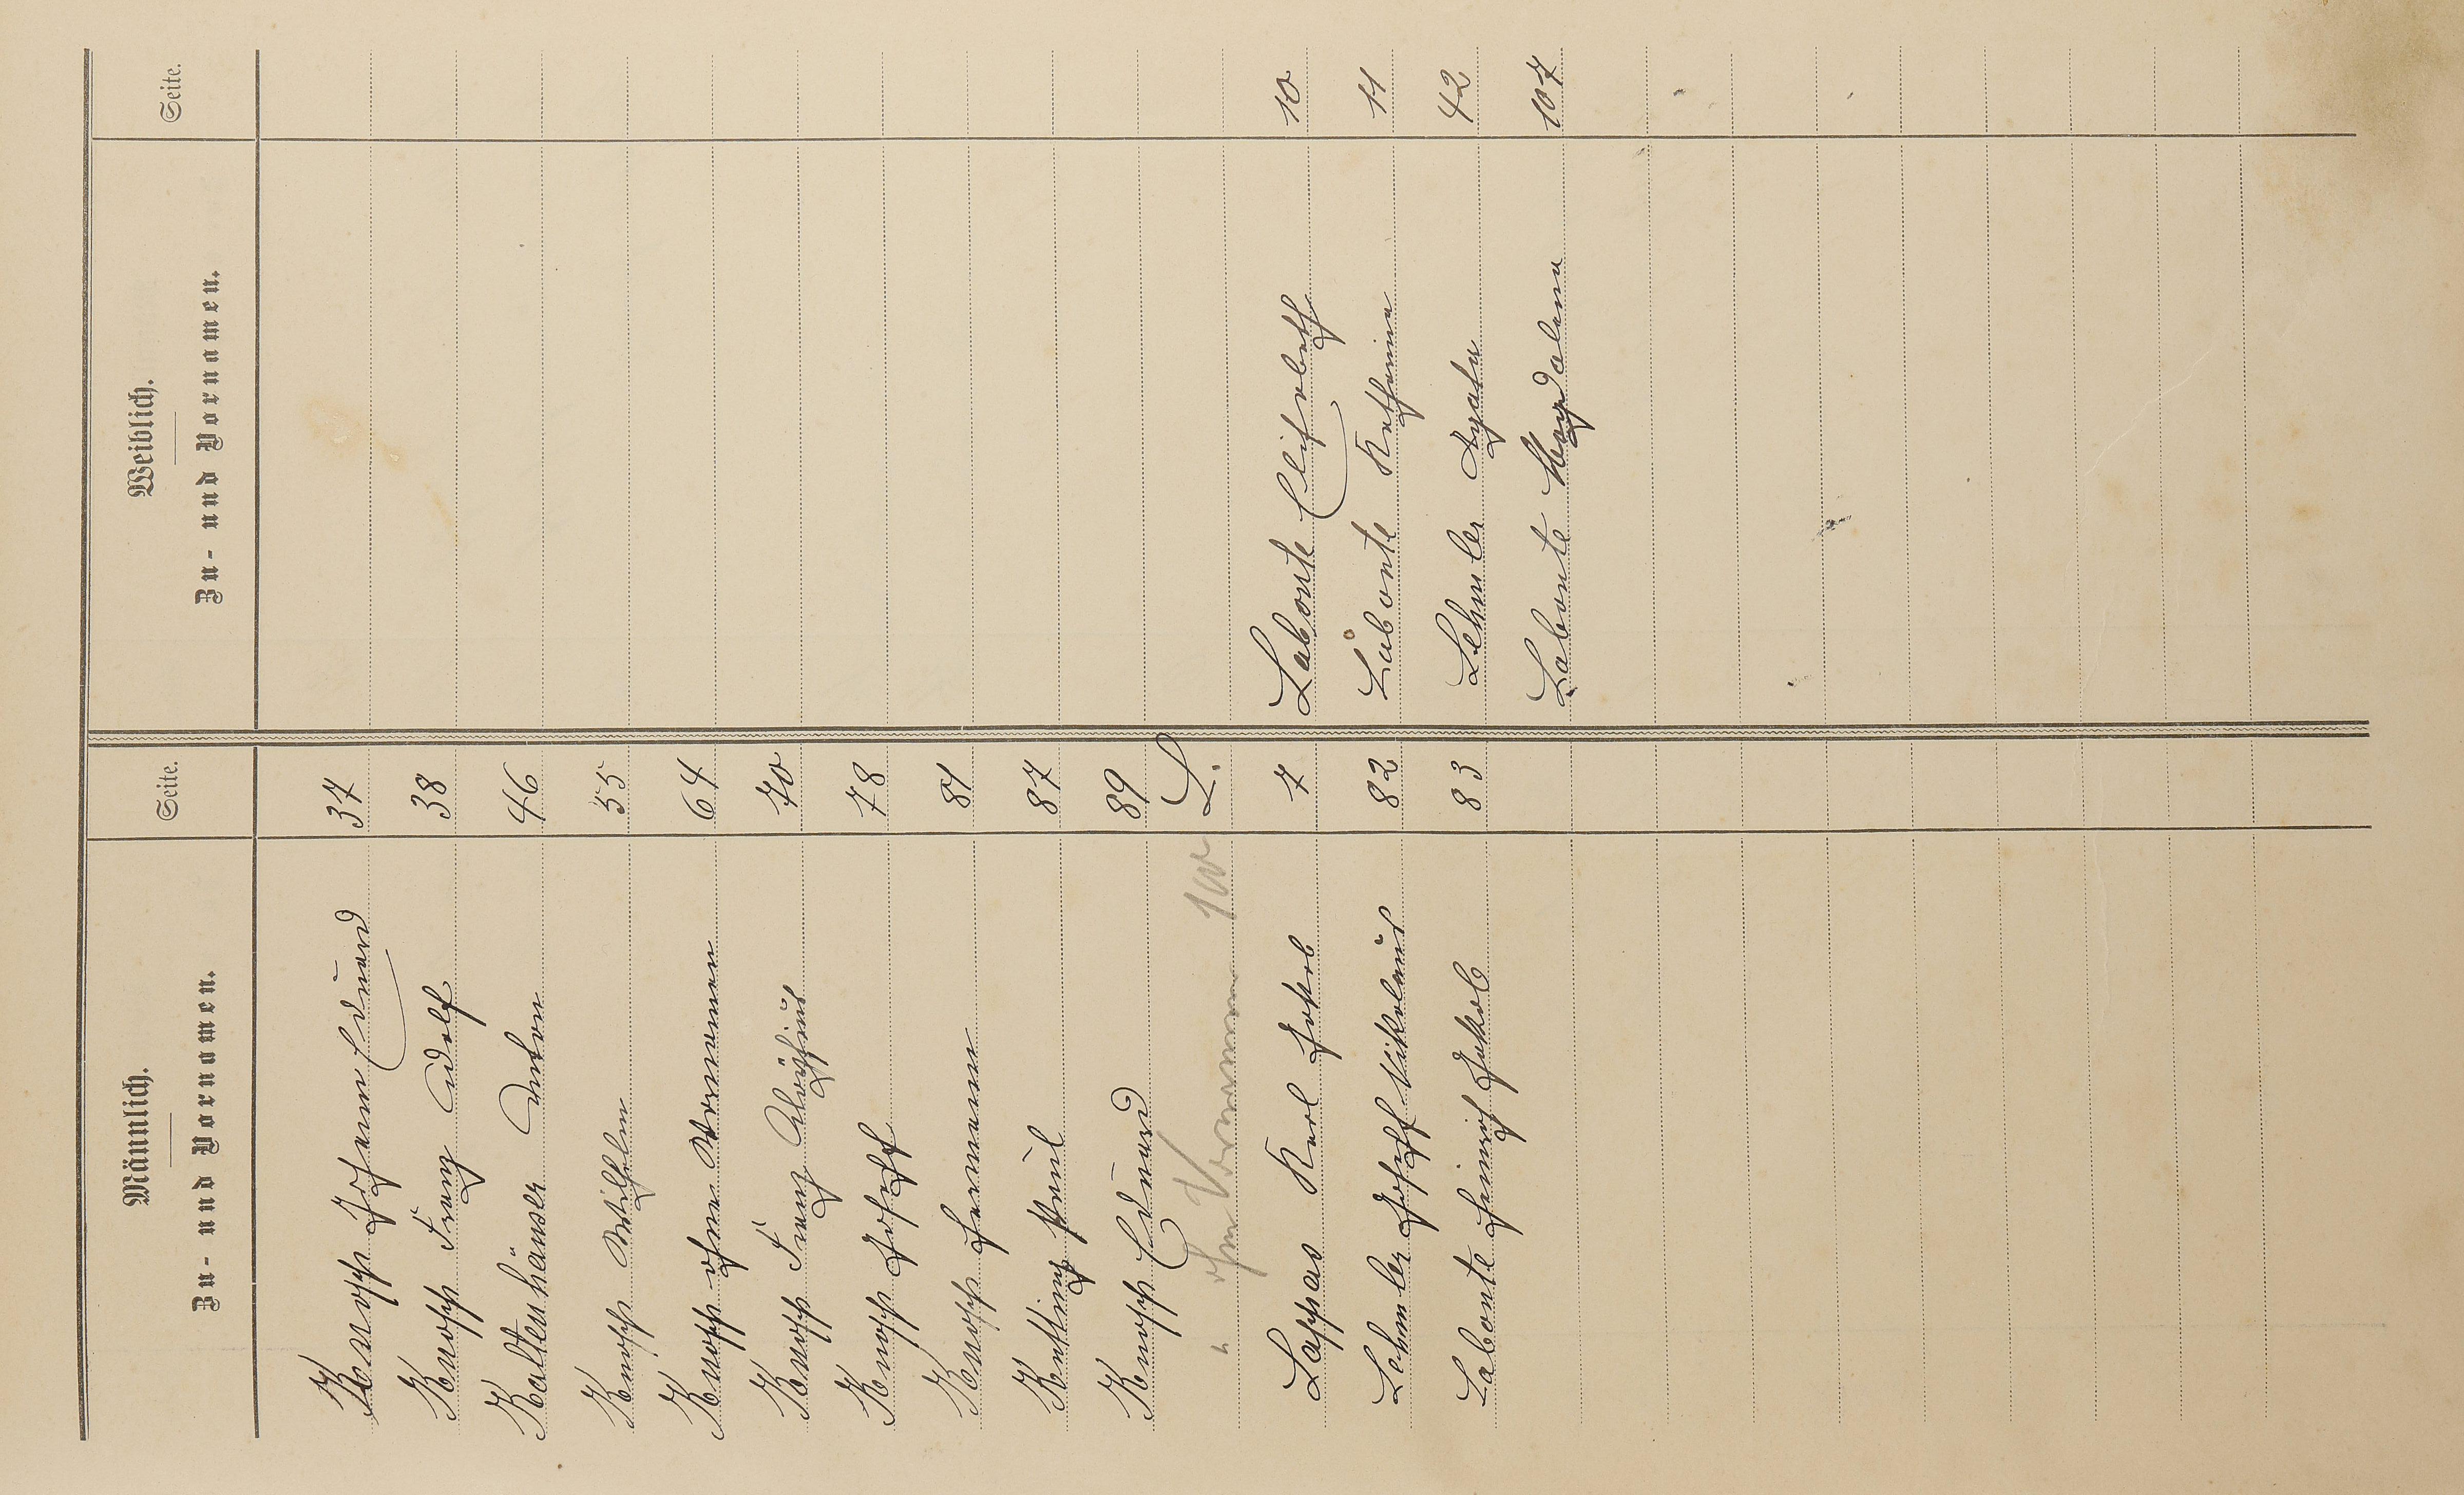 Männlich. Weiblich.
Zu- und Vornamen. Seite. Zu- und Vornamen. Seite.
Knopp Johann Eduard 37
Knopp Franz Adolf 38
Kaltenhäuser Anton 46
Knopp Wilhelm 55
Knopp ohne Vornamen 64
Knopp Franz Aloysius 70
Knopp Joseph 78
Knopp Hermann 81
Paul 87
Knopp Eduard 89
" ohne Vornamen 100
L.
Lappas Karl Jakob 7 Labonte Elisabeth 10
Lehmler Joseph Nikolaus 82 Labonte Katharina 11
Labonte Heinrich Jakob 83 Lehmler Agatha 42
Labonte Magdalena 107